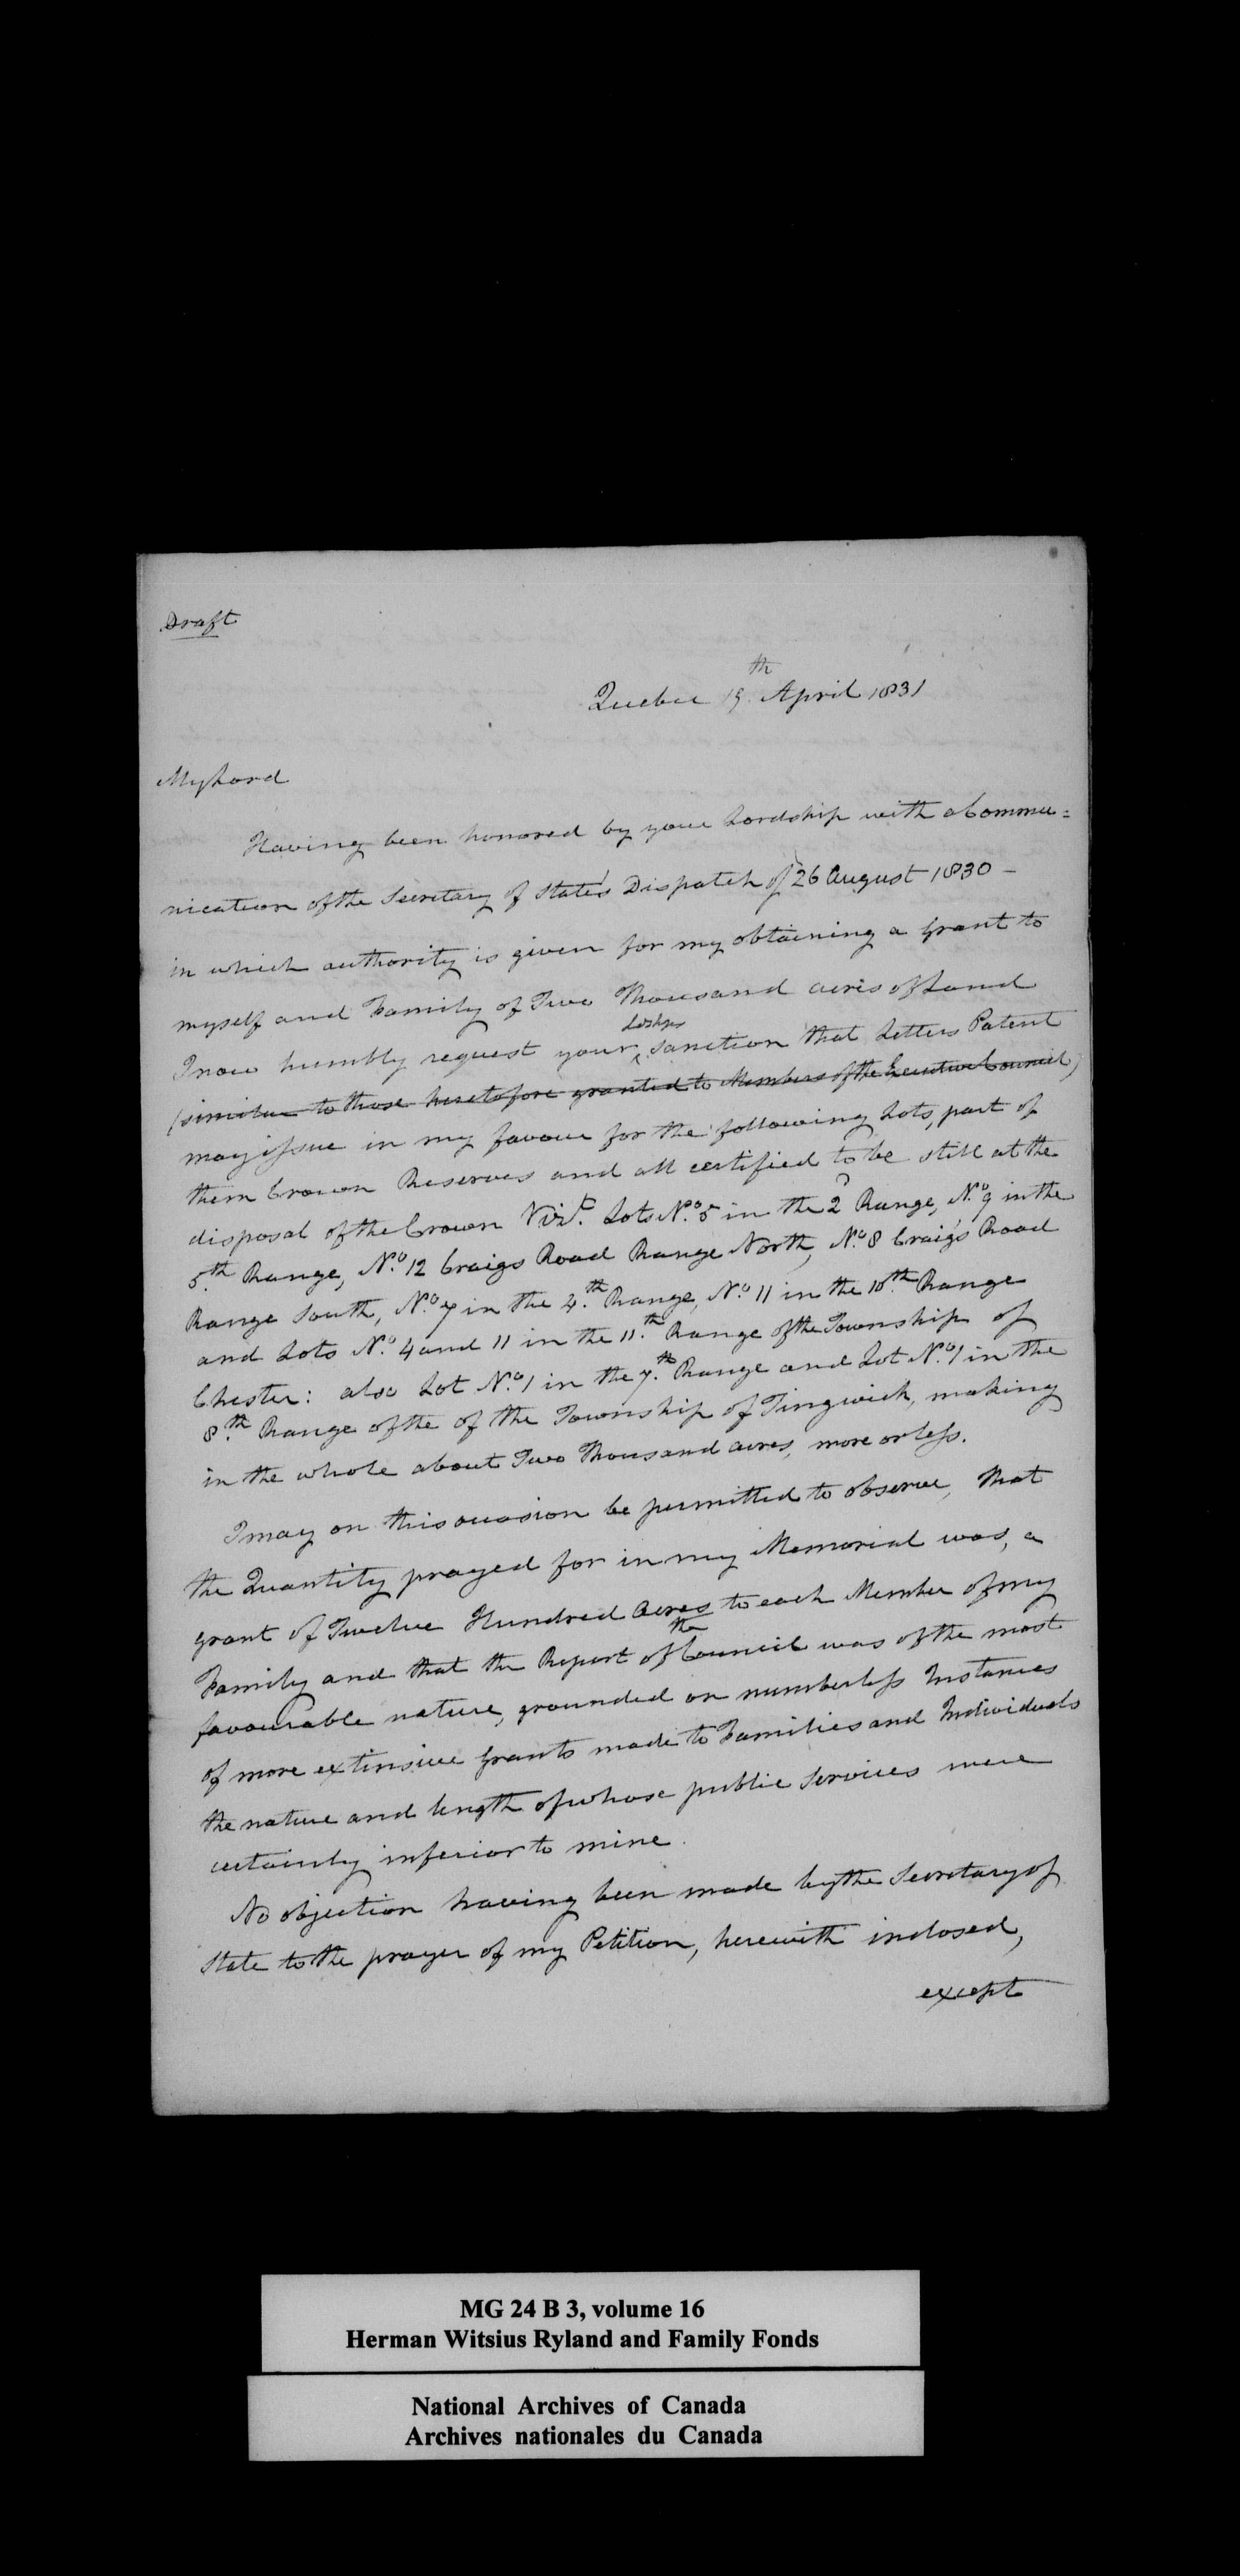 Draft
Quebec 19th April 1831
My Lord
Having been honored by your Lordship with a Commu=
nication of the Secretary of State's Dispatch of 26 August 1830 -
in which authority is given for my obtaining a Grant to
myself and Family of Two Thousand acres of Land
I now humbly request your Ldship's sanction that Letters Patent
(similar to those heretofore granted to Members of the Executive Council)
may issue in my favour for the following Lots, part of
them Crown Reserves and all certified to be still at the
disposal of the Crown Vizt. Lots No. 5 in the 2d Range, No. 9 in the
5th Range, No. 12 Craigs Road Range North, No. 8 Craig's Road
Range South, No. 7 in the 4th Range, No. 11 in the 10th Range
and Lots No. 4 and 11 in the 11th Range of the Township of
Chester: also Lot No. 1 in the 7th Range and Lot No. 1 in the
8th Range of the of the Township of Tingwick, making
in the whole about Two Thousand acres, more or less.
I may on this occasion be permitted to observe, that
the Quantity prayed for in my Memorial was, a
grant of Twelve Hundred Acres to each Member of my
Family and that the Report of the Council was of the most
favourable nature, grounded on numberless Instances
of more extensive Grants made to Families and Individuals
the nature and length of whose public Services were
certainly inferior to mine.
No objection having been made by the Secretary of
State to the prayer of my Petition, herewith inclosed,
except
MG 24 B 3, volume 16
Herman Witsius Ryland and Family Fonds
National Archives of Canada
Archives nationales du Canada